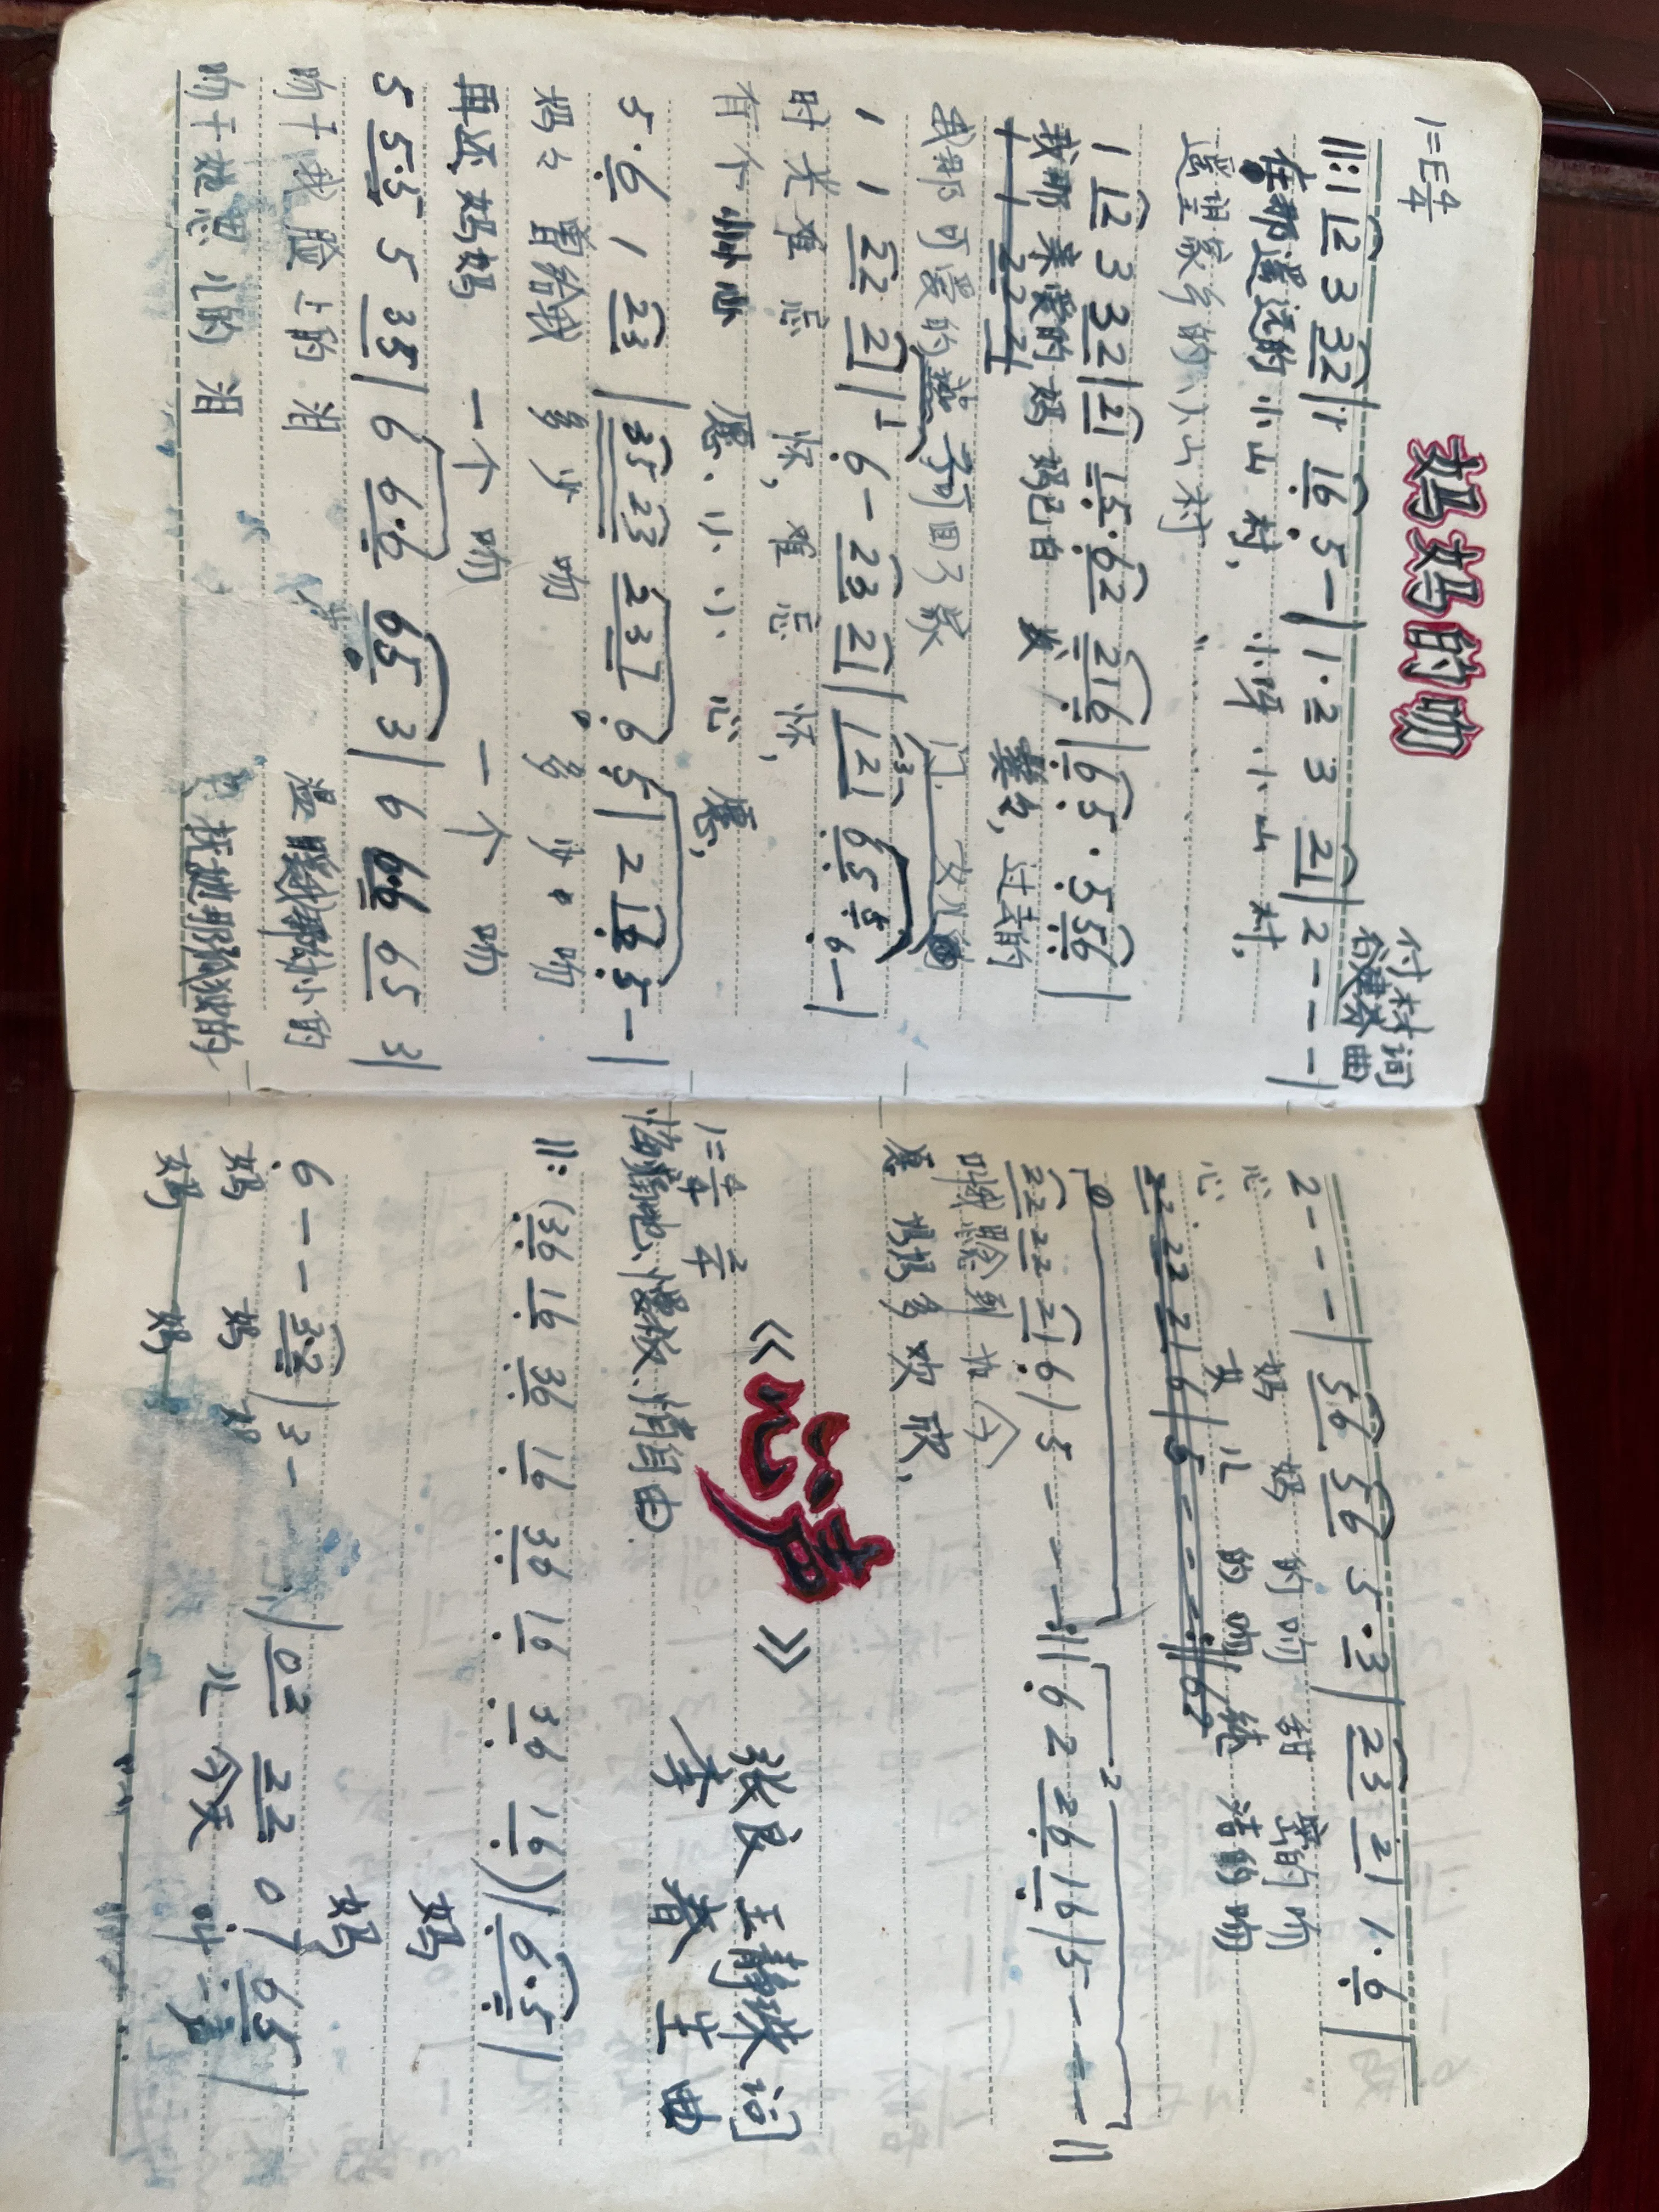 妈妈的吻
1=E 4/4
付林 词
谷建芬 曲
‖: 1 12 3 32 | 1 16 5 - | 1·2 3 21 | 2 - - - |
在那遥远的小山村, 小呀小山村,
遥望家乡的小山村,
1 12 3 32 | 21 15·62 216 | 65·556 |
我那亲爱的妈妈已白发鬓白, 过去的
我那可爱的 回了家门, 女儿的
1 1 22 21 | 1 6 - 23 21 | 121 655 6 - |
时光难忘怀, 难忘怀,
有个小小愿, 小小心愿,
5·6 1 23 | 35 23 237 65 | 2 16 5 - |
妈妈曾给我多少吻 多少吻
再还妈妈一个吻 一个吻
5 55·5 5 35 | 6 66·6 65 3 | 6 66 65 3 |
吻干我脸上的泪 温暖我那幼小的
吻干她思儿的泪 抚她那孤独的
2 - - - | 56 56 5·3 | 23 21 1·6 |
心 妈妈的吻 甜蜜的吻
心 女儿的吻 纯洁的吻
22 22 21 6 | 5 - - - :‖ 62 26 16 | 5 - - - ‖
叫我思念到如今
愿妈妈多欢欣,
《心声》
1=F 4/4 2/4
张良 王静珠 词
李春生 曲
悔恨地、慢板、稍自由
‖: (36 16 36 16 36 16 36 16) | 6·5 |
妈
妈
6 - - 3·2 | 3 - - | 02 22 07 65 |
妈 妈 妈 儿今天叫一声
妈 妈